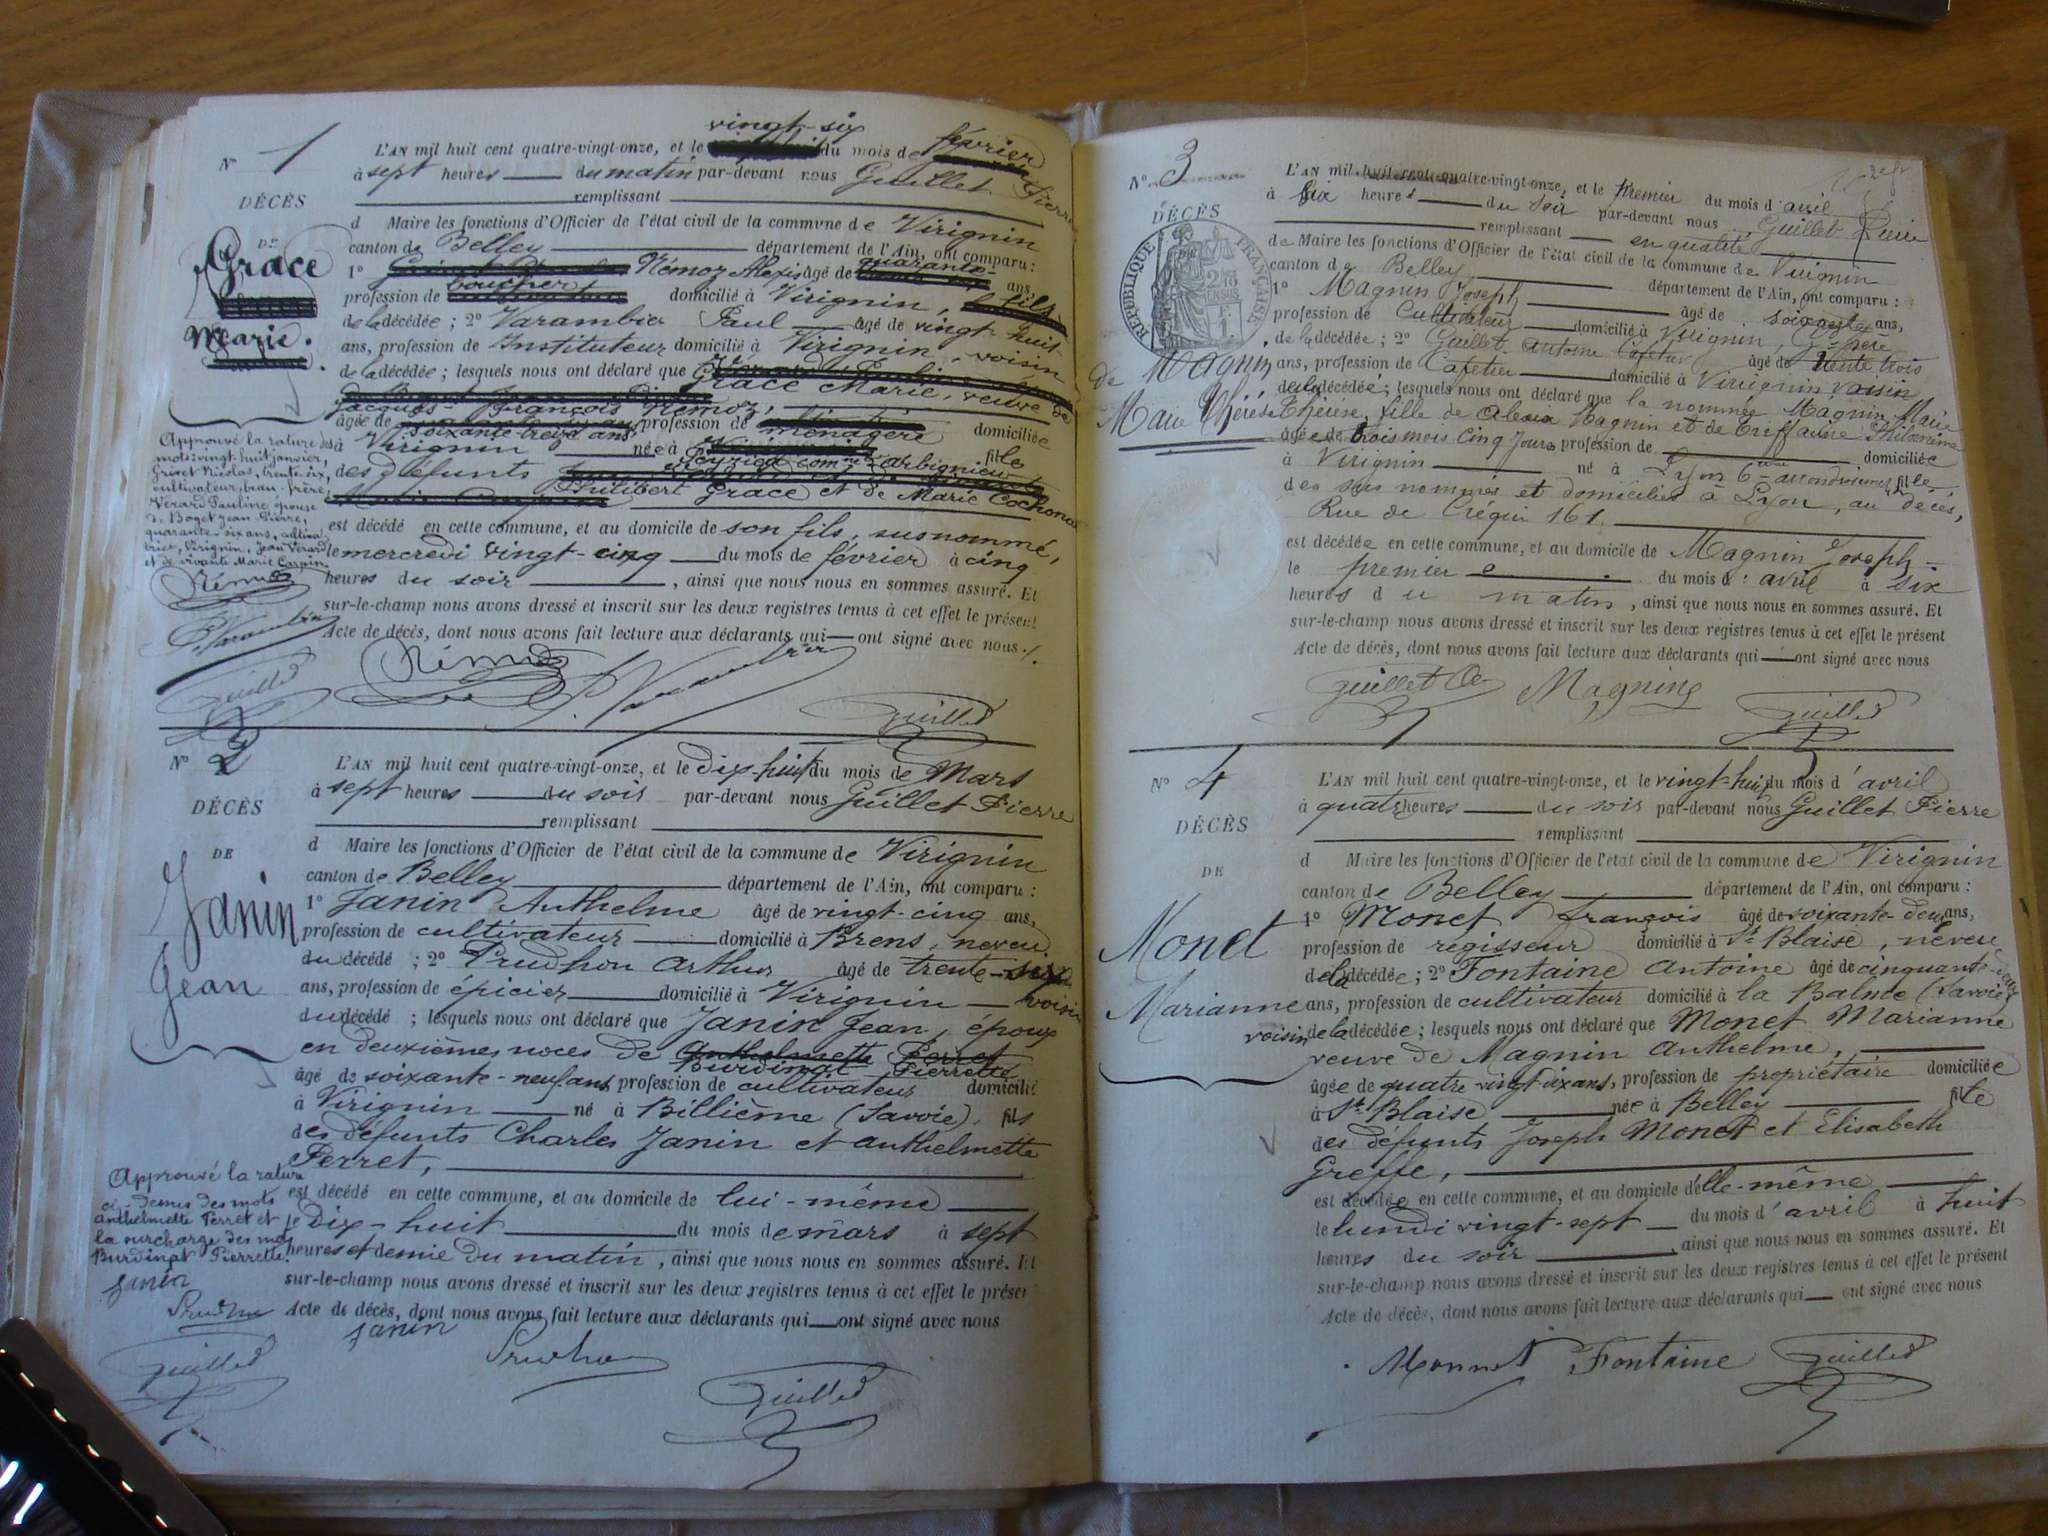 vingt-six
N° 1 L'AN mil huit cent quatre-vingt-onze, et le du mois de février
à sept heures du matin par-devant nous Guillet Pierre
DÉCÈS remplissant
d Maire les fonctions d'Officier de l'état civil de la commune de Virignin
DE canton de Belley département de l'Ain, ont comparu :
Grace 1° Némoz Alexis âgé de quarante- ans,
boucher
profession de domicilié à Virignin, fils
Marie. de la décédée ; 2° Varambier Paul âgé de vingt-huit
ans, profession de Instituteur domicilié à Virignin, voisin
de la décédée ; lesquels nous ont déclaré que
Grace Marie, veuve de
Jacques-François Némoz,
âgée de soixante treize ans profession de ménagère domiciliée
à Virignin née à comm. d'Arbignieu fille
des défunts
Philibert Grace et de Marie Cochonat
est décédé en cette commune, et au domicile de son fils, susnommé,
le mercredi vingt-cinq du mois de février à cinq
heures du soir , ainsi que nous nous en sommes assuré. Et
sur-le-champ nous avons dressé et inscrit sur les deux registres tenus à cet effet le présent
Acte de décès, dont nous avons fait lecture aux déclarants qui ont signé avec nous ./.
Approuvé la rature des
mots: vingt-huit janvier,
Grivet Nicolas, trente-six,
cultivateur, beau-frère,
Vérard Pauline épouse
de Boget Jean-Pierre,
quarante-six ans, cultiva
trice, Virignin, Jean Vérard
et de vivante Marie Carpin
Némoz
P. Varambier
Guillet
Némoz P. Varambier
Guillet
N° 2 L'AN mil huit cent quatre-vingt-onze, et le dix-huit du mois de Mars
à sept heures du soir par-devant nous Guillet Pierre
DÉCÈS remplissant
DE d Maire les fonctions d'Officier de l'état civil de la commune de Virignin
canton de Belley département de l'Ain, ont comparu :
Janin 1° Janin Anthelme âgé de vingt-cinq ans,
profession de cultivateur domicilié à Brens, neveu
Jean du décédé ; 2° Prudhon Arthur âgé de trente-six
ans, profession de épicier domicilié à Virignin voisin
du décédé ; lesquels nous ont déclaré que Janin Jean, époux
en deuxièmes noces de Anthelmette Perret
Burdinat Pierrette
âgé de soixante-neuf ans profession de cultivateur domicilié
à Virignin né à Billième (Savoie), fils
des défunts Charles Janin et Anthelmette
Perret,
est décédé en cette commune, et au domicile de lui-même
le Dix-huit du mois de mars à sept
heures et demie du matin , ainsi que nous nous en sommes assuré. Et
sur-le-champ nous avons dressé et inscrit sur les deux registres tenus à cet effet le présent
Acte de décès, dont nous avons fait lecture aux déclarants qui ont signé avec nous
Approuvé la rature
ci-dessus des mots
Anthelmette Perret et
la surcharge des mots
Burdinat Pierrette.
Janin
Prudhon
Guillet
Janin Prudhon
Guillet
N° 3 L'AN mil huit cent quatre-vingt-onze, et le premier du mois d'avril
à six heures du soir par-devant nous Guillet Pierre
DÉCÈS remplissant en qualité
de Maire les fonctions d'Officier de l'état civil de la commune de Virignin
canton de Belley département de l'Ain, ont comparu :
RÉPUBLIQUE FRANÇAISE
1° Magnin Joseph âgé de soixante ans,
profession de Cultivateur domicilié à Virignin, père
de la décédée ; 2° Guillet Antoine Cafetier âgé de trente trois
de Magnin ans, profession de Cafetier domicilié à Virignin voisin
de la décédée ; lesquels nous ont déclaré que la nommée Magnin Marie
Marie Thérèse Thérèse, fille de Magnin et de Philomène
âgée de trois mois cinq jours profession de domiciliée
à Virignin né à Lyon 6me arrondissement fille
des sus nommés et domiciliés à Lyon, au décès,
Rue de Créqui 161.
est décédée en cette commune, et au domicile de Magnin Joseph
le premier du mois d' avril à six
heures du matin , ainsi que nous nous en sommes assuré. Et
sur-le-champ nous avons dressé et inscrit sur les deux registres tenus à cet effet le présent
Acte de décès, dont nous avons fait lecture aux déclarants qui ont signé avec nous
Guillet Magnin
Guillet
N° 4 L'AN mil huit cent quatre-vingt-onze, et le vingt-huit du mois d'avril
à quatre heures du soir par-devant nous Guillet Pierre
DÉCÈS remplissant
d Maire les fonctions d'Officier de l'état civil de la commune de Virignin
DE canton de Belley département de l'Ain, ont comparu :
Monet 1° Monet François âgé de soixante-deux ans,
profession de régisseur domicilié à St Blaise, neveu
de la décédée ; 2° Fontaine Antoine âgé de cinquante-deux
Marianne ans, profession de cultivateur domicilié à la Balme (Savoie)
voisin de la décédée ; lesquels nous ont déclaré que Monet Marianne
veuve de Magnin Anthelme,
âgée de quatre vingt-six ans, profession de propriétaire domiciliée
à St Blaise née à Belley fille
des défunts Joseph Monet et Elisabeth
Greffe,
est décédée en cette commune, et au domicile d'elle-même
le lundi vingt-sept du mois d'avril à huit
heures du soir , ainsi que nous nous en sommes assuré. Et
sur-le-champ nous avons dressé et inscrit sur les deux registres tenus à cet effet le présent
Acte de décès, dont nous avons fait lecture aux déclarants qui ont signé avec nous
Monnet Fontaine Guillet